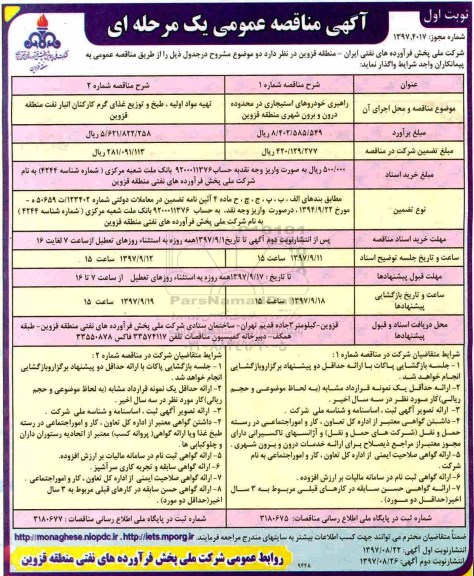 نوبت اول
آگهی مناقصه عمومی یک مرحله ای
شماره مجوز: ۱۳۹۷،۴۰۱۷
شرکت ملی پخش فرآورده های نفتی ایران - منطقه قزوین در نظر دارد دو موضوع مشروح درجدول ذیل را از طریق مناقصه عمومی به
پیمانکاران واجد شرایط واگذار نماید:
عنوان
شرح مناقصه شماره ۱
شرح مناقصه شماره ۲
موضوع مناقصه و محل اجرای آن
راهبری خودروهای استیجاری در محدوده
درون و برون شهری منطقه قزوین
تهیه مواد اولیه ، طبخ و توزیع غذای گرم کارکنان انبار نفت منطقه
قزوین
مبلغ برآورد
۸/۴۰۲/۵۸۵/۵۴۹ ریال
۵/۶۲۱/۸۲۲/۲۵۸ ریال
مبلغ تضمین شرکت در مناقصه
۴۲۰/۱۲۹/۲۷۷ ریال
۲۸۱/۰۹۱/۱۱۳ ریال
مبلغ خرید اسناد
۵۰۰/۰۰۰ ریال به صورت واریز وجه نقدبه حساب ۹۲۰۰۰۱۱۳۷۶ بانک ملت شعبه مرکزی ( شماره شناسه ۴۲۴۴) به نام
شرکت ملی پخش فرآورده های نفتی منطقه قزوین
نوع تضمین
مطابق بندهای الف ، ب ، پ ، ج ، چ ، ح ماده ۴ آئین نامه تضمین در معاملات دولتی شماره ۱۲۳۴۰۲/ت ۵۰۶۵۹ ه -
مورخ ۱۳۹۴/۹/۲۲ ، درصورت واریز وجه نقد، به حساب ۹۲۰۰۰۱۱۳۷۶ بانک ملت شعبه مرکزی ( شماره شناسه ۴۲۴۴ )
به نام شرکت ملی پخش فرآورده های نفتی منطقه قزوین
مهلت خرید اسناد مناقصه
پس از انتشارنوبت دوم آگهی تا تاریخ ۱۳۹۷/۹/۱همه روزه به استثناء روزهای تعطیل ازساعت ۷ لغایت ۱۶
ساعت و تاریخ جلسه توضیح اسناد
۱۳۹۷/۹/۱۱ ساعت ۱۵
۱۳۹۷/۹/۱۲ ساعت ۱۵
مهلت قبول پیشنهادها
تا تاریخ : ۱۳۹۷/۹/۱۷همه روزه به استثناء روزهای تعطیل از ساعت ۷ تا ۱۶
ساعت و تاریخ بازگشایی
پیشنهادها
۱۳۹۷/۹/۱۸ ساعت ۱۵
۱۳۹۷/۹/۱۹ ساعت ۱۵
محل دریافت اسناد و قبول
پیشنهادها
قزوین-کیلومتر۲جاده قدیم تهران-ساختمان ستادی شرکت ملی پخش فرآورده های نفتی منطقه قزوین-طبقه
همکف- دبیرخانه کمیسیون مناقصات تلفن ۳۳۵۷۴۱۱۷ فاکس ۳۳۵۵۰۸۷۸
شرایط متقاضیان شرکت در مناقصه شماره ۱ :
۱- جلسه بازگشایی پاکات با ارائه حداقل دو پیشنهاد برگزاروبازگشایی
انجام خواهد شد .
۲- ارائه حداقل یک نمونه قرارداد مشابه (به لحاظ موضوعی و حجم
ریالی)کار مورد نظر در سه سال اخیر .
۳- ارائه تصویر آگهی ثبت ، اساسنامه و شناسه ملی شرکت .
۴- داشتن گواهی معتبر از اداره کل تعاون ، کار و اموراجتماعی در رسته
حمل و نقل (شرکت های حمل و نقل) و آژانسهای تاکسیرانی دارای
مجوز معتبراز مراجع ذیصلاح برای ارائه خدمات درون و برون شهری .
۵- ارائه گواهی صلاحیت ایمنی از اداره کل تعاون ، کار و اموراجتماعی به نام
شرکت .
۶- ارائه گواهی ثبت نام در سامانه مالیات بر ارزش افزوده .
۷- ارائه گواهی حسن سابقه در کارهای قبلی مربوط به ۳ سال
اخیر(حداقل دو مورد) .
شرایط متقاضیان شرکت در مناقصه شماره ۲ :
۱ - جلسه بازگشایی پاکات با ارائه حداقل دو پیشنهاد برگزاروبازگشایی
انجام خواهد شد .
۲- ارائه حداقل یک نمونه قرارداد مشابه (به لحاظ موضوعی و حجم
ریالی)کار مورد نظر در سه سال اخیر .
۳- ارائه تصویر آگهی ثبت ، اساسنامه و شناسه ملی شرکت .
۴- داشتن گواهی معتبر از اداره کل تعاون ، کار و اموراجتماعی در رسته
طبخ غذا ویا ارائه گواهی( پروانه کسب) معتبر از اتحادیه رستوران داران
و چلوکبابی ها .
۵- ارائه گواهی ثبت نام در سامانه مالیات بر ارزش افزوده.
۶- ارائه گواهی سابقه و تجربه کاری سرآشپز .
۷- ارائه گواهی صلاحیت ایمنی از اداره کل تعاون ، کار و اموراجتماعی .
۸- ارائه گواهی حسن سابقه در کارهای قبلی مربوط به ۳ سال
اخیر(حداقل دو مورد) .
شماره ثبت در پایگاه ملی اطلاع رسانی مناقصات: ۳۱۸۰۶۷۵
شماره ثبت در پایگاه ملی اطلاع رسانی مناقصات : ۳۱۸۰۶۷۷
ضمناً متقاضیان محترم می توانند جهت کسب اطلاعات بیشتر به سایتهای مندرج مراجعه فرمایند. http://monaghese.niopdc.ir ، http://iets.mporg.ir
انتشارنوبت اول آگهی: ۱۳۹۷/۰۸/۲۲
انتشارنوبت دوم آگهی: ۱۳۹۷/۰۸/۲۶
۹۴۲۸
روابط عمومی شرکت ملی پخش فرآورده های نفتی منطقه قزوین